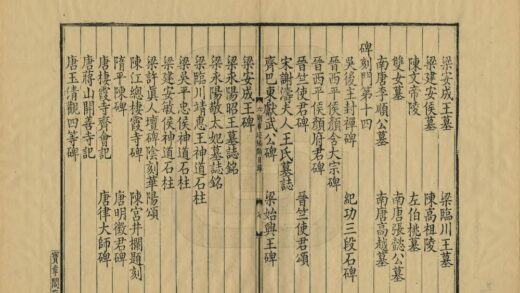 梁安成王墓　梁臨川王墓
梁建安侯墓　陳高祖陵
陳文帝陵　左伯桃墓
雙女墓　南唐張懿公墓
南唐李順公墓　南唐高越墓
碑刻門第十四
吳後主封禪碑　紀功三段石碑
晉西平侯顏含大宗碑
晉西平侯顏府君碑
晉竺使君碑　晉竺使君頌
宋謝濤夫人王氏墓誌
齊巴東獻武公碑　梁始興王碑
梁安成王碑
梁永陽昭王墓誌銘
梁永陽敬太妃墓誌銘
梁臨川靖惠王神道石柱
梁吳平忠侯神道石柱
梁建安敏侯神道石柱
梁許真人壇碑陰刻華陽頌
陳江總棲霞寺碑　陳宮井欄題刻
隋平陳碑　唐明徵君碑
唐棲霞寺齊會記　唐律大師碑
唐蔣山開善寺記
唐玉清觀四等碑
寶章閣